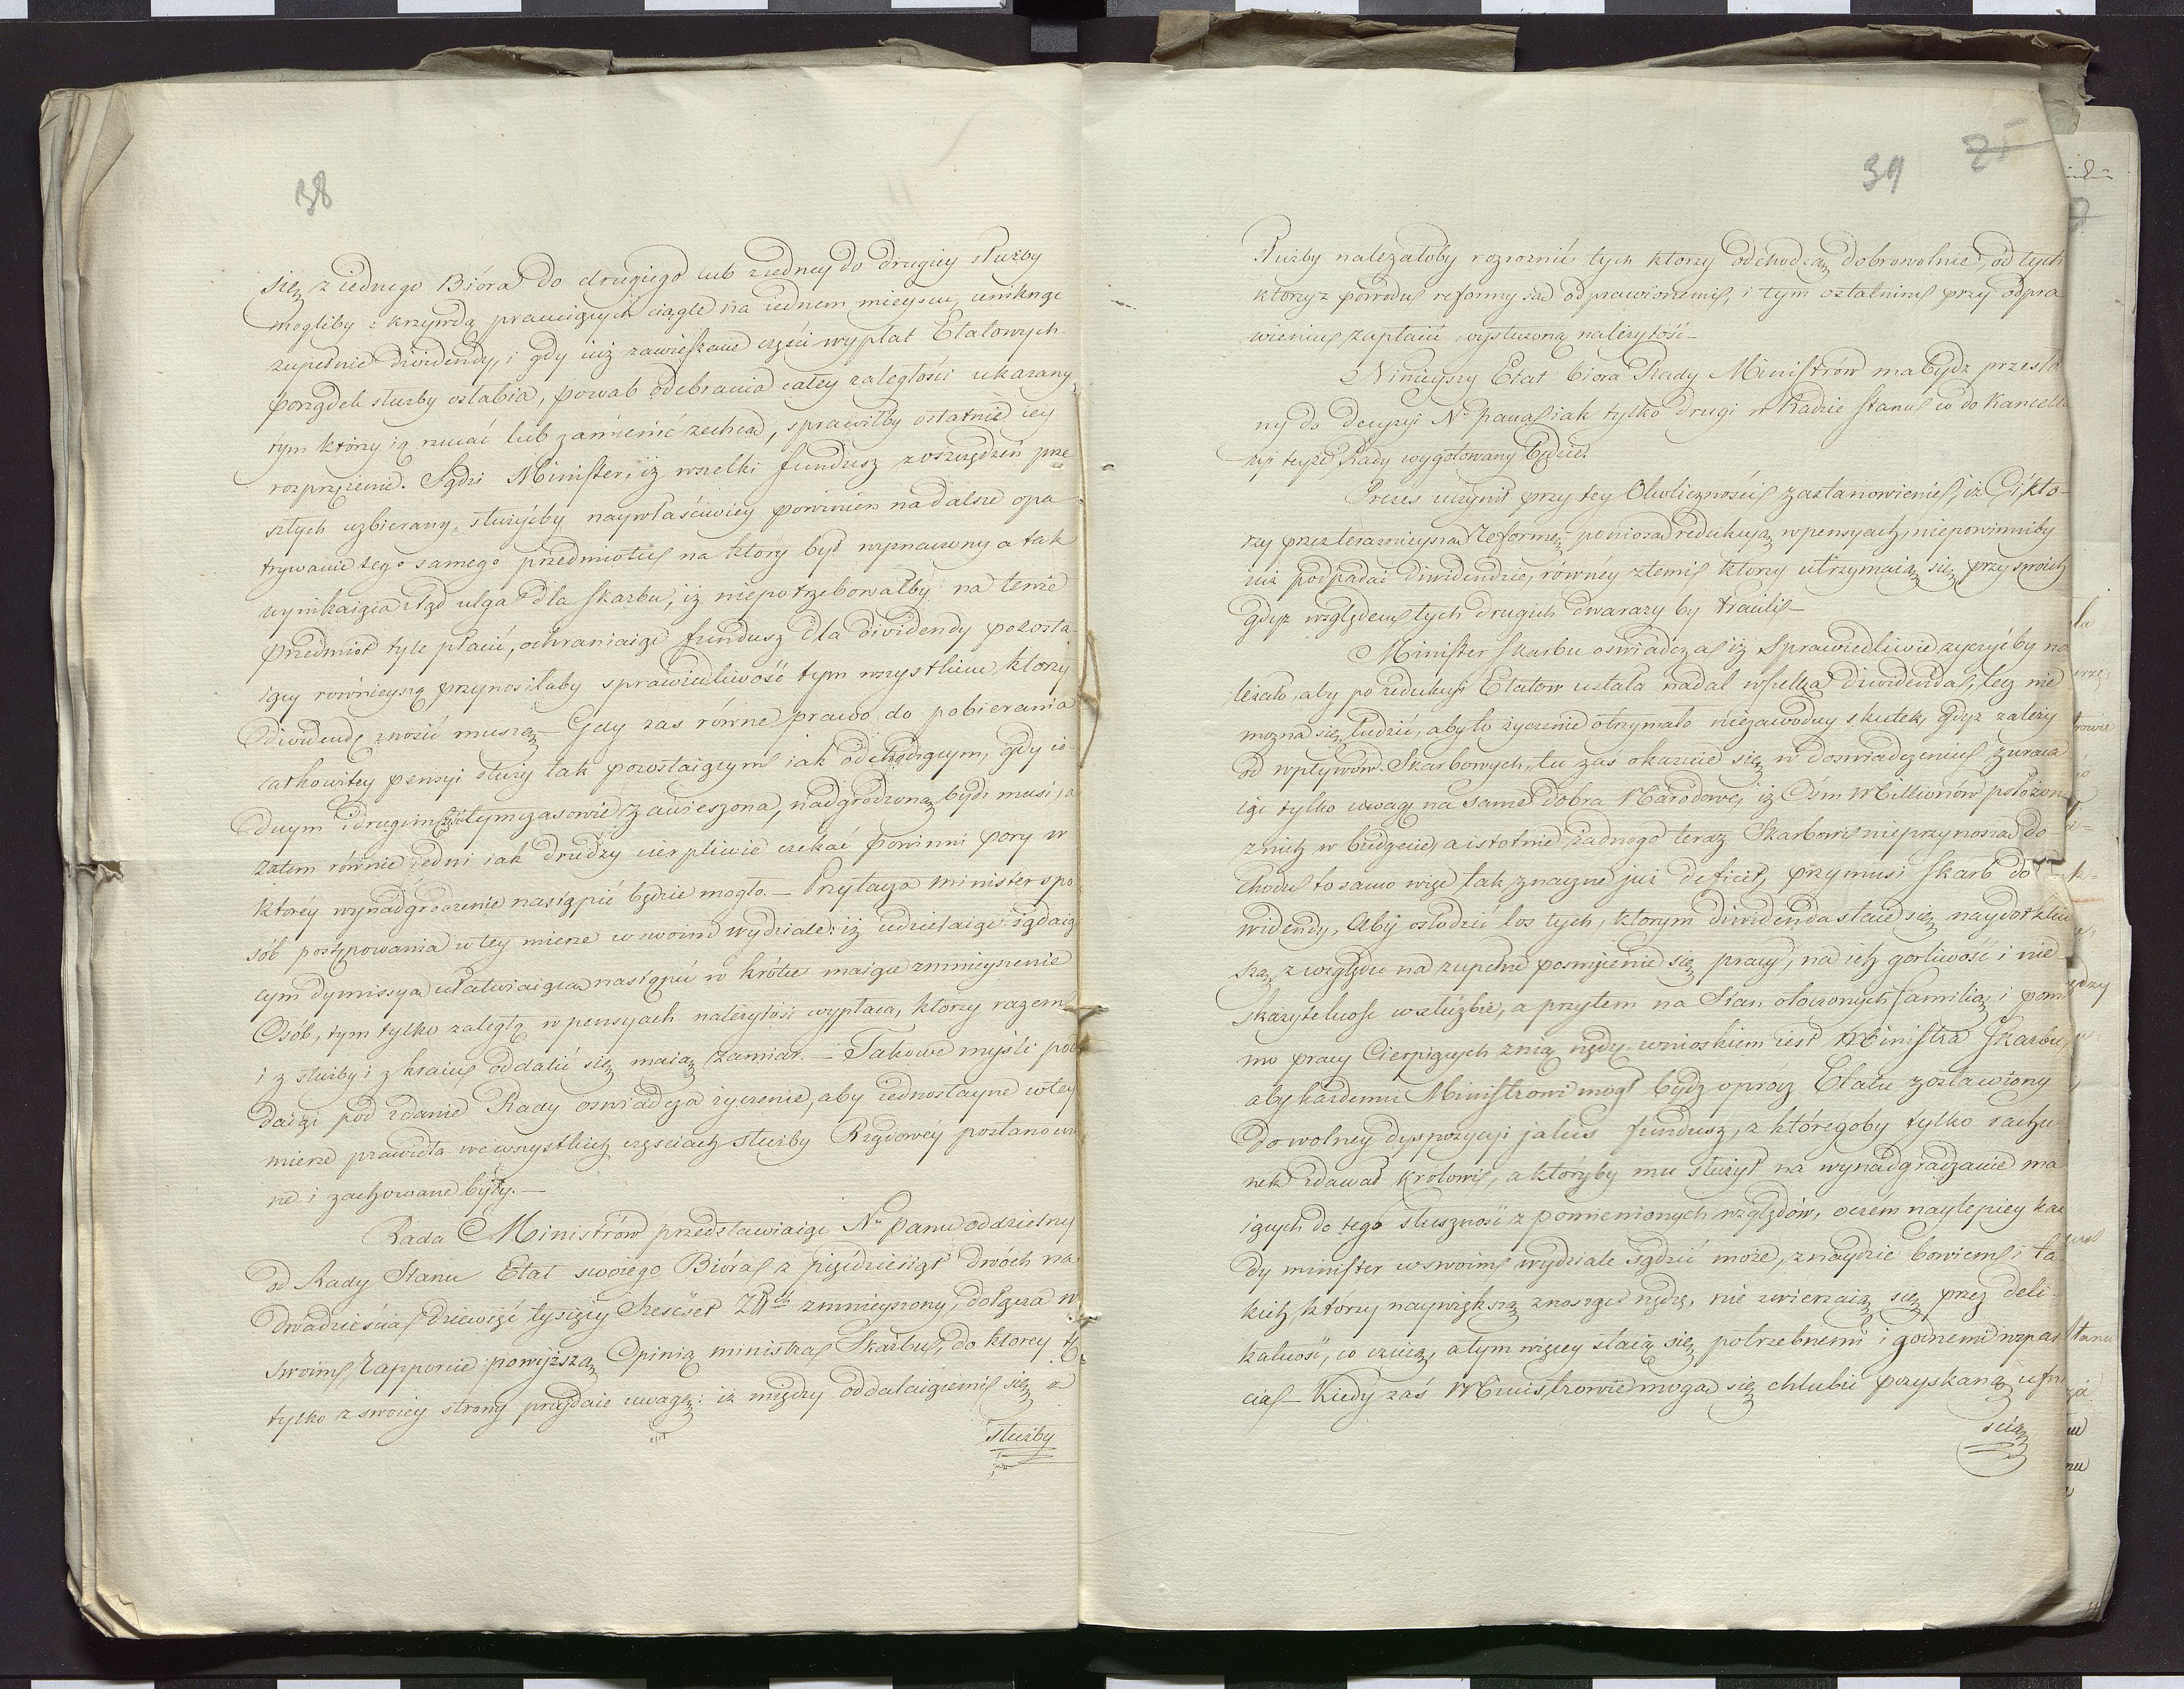 38
się z iednego Bióra do drugiego lub z iedney do drugiey służby
mogliby z krzywdą pracuiących ciągle na iednem mieyscu, uniknąć
zupełnie dividendy, i gdy iuż zawieszenie części wypłat Etatowych
porządek służby osłabia, powab odebrania całey zaległości ukazany
tym którzy ią rzucać lub zamienić zechcą, sprawiłby ostatnie iey
rozprzężenie. Sądzi Minister, iż wszelki fundusz z oszczędzeń prze
szłych uzbierany, służyćby naywłaściwiey powinien na dalsze opa
trywanie tego samego przedmiotu na który był wyznaczony a tak
wynikaiąca ztąd ulga dla skarbu, iż niepotrzebowałby na tenże
przedmiot tyle płacić, ochraniaiąc fundusz dla dividendy pozosta-
iący równieyszą przynosiłaby sprawiedliwość tym wszystkim którzy
dividendę znosić muszą – Gdy zas równe prawo do pobierania
całkowitey pensyi służy tak pozostaiącym iak odchodzącym, gdy ie-
dnym i drugim tymczasowie zawieszona, nadgrodzoną bydź musi, a
zatem równie iedni iak drudzy cierpliwie czekać powinni pory w
któréy wynadgrodzenie nasiąpić będzie mogło. – Przytacza Minister spo
sób postępowania w tey mierze w swoim wydziale: iż udzielaiąc żądaią
cym dymissya ułatwiaiąca nasiąpić w krótce maiące zmnieyszenie
Osób, tym tylko zaległą w pensyach należytość wypłaca, ktorzy razem
i z służby i z kraiu oddalić się maią zamiar. – Takowe myśli pod
daiąc pod zdanie Rady oswiadcza życzenie, aby iednostayne w tey
mierze prawidła we wszystkich częsciach służby Rządowéy postanowio
ne i zachowane były. –
Rada Ministrów przedstawiaiąc Nu Panu oddzielny
od Rady Stanu Etat swoiego Bióra z pięćdziesiąt dwóch na
dwadzieścia dziewięć tysięcy Szescset zmnieyszony, dołącza w
swoim Rapporcie powyższą Opinią ministra Skarbu, do ktorey tę
tylko z swoiey strony przydaie uwagę: iż między oddalaiącemi się z
służby
39
Służby należałoby rozroznić tych ktorzy odchodzą dobrowolnie, od tych
ktorzy z powodu reformy są odprawionemi, i tym ostatnim przy odpra
wieniu zapłacić wysłużoną należytość –
Ninieyszy Etat bióra Rady Ministrów ma bydz przesła
ny do decyzyi Nu pana iak tylko drugi w Radzie stanu co do Kancella
ryi teyże Rady wygotowany będzie.
Prezes uczynił przy tey Okoliczności zastanowienie, iż Ci, kto-
rzy przez teraznieyszą Reformę poniosą redukcyą w pensyach, niepowinniby
iuż podpadać dividendzie, równéy z temi ktorzy utrzymaią się przy swoich
gdyż względem tych drugich dwa razy by tracili –
Minister skarbu oswiadcza iż Sprawiedliwie zyczyć by na
leżało, aby po redukcyi Etatow ustała nadal wszelka dividenda, lecz nie
można się łudzić, aby to życzenie otrzymało niezawodny skutek, gdyż zależy
od wpływów Skarbowych, tu zaś okazuie się w doswiadczeniu zwraca
iąc tylko uwagę na same dobra Narodowe, iż Ośm Millionów położono
z nich w budzecie, a istotnie żadnego teraz Skarbowi nieprzynoszą do
chodu to samo więc tak znaczne iuż deficit, przymusi skarb do di
widendy. Aby osłodzić los tych, ktorym dividenda staie się naydotkliw
szą, z względu na zupełne poswięcenie się pracy, na ich gorliwość i nie
skazytelność w służbie, a przytem na Stan otoczonych familią i pomi
mo pracy Cierpiących z nią nędzę. wnioskiem iest Ministra Skarbu,
aby każdemu Ministrowi mogł bydź oprócz Etatu zostawiony
do wolney dyspozycyi jakis fundusz, z któregoby tylko rachu
nek zdawał krolowi, a któryby mu służył na wynadgradzanie ma
iących do tego słuszność z pomienionych względów, oczém naylepiey każ
dy minister w swoim wydziale sądzić może, znaydzie bowiem i ta-
kich, którzy naywiększą znosząc nędzę, nie zwierzaią się przez deli-
katność, co czuią, a tym więcey staią się potrzebnemi i godnemi wspar
cia – Kiedy zaś Ministrowie mogą się chlubić pozyskaną ufno
scią